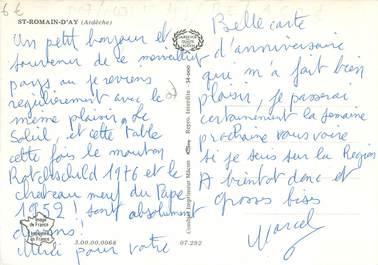 6€
ST-ROMAIN-D'AY (Ardèche)
Un petit bonjour et
souvenir de ce merveilleux
pays au je reviens
regulièrement avec le
même plaisir. Le
Soleil, et cette table
cette fois le mouton
Rotcheschild 1976 et le
chateau neuf du Pape
1952 ! sont absolument
divins !
Merci pour votre
Belle carte
d'anniversaire
que m'a fait bien
plaisir, je passerai
certainement la semaine
prochaine vous voire
si je suis sur la Région
A bientot donc et
grosses bises
Marcel
Combier Imprimeur Mâcon
Repro. Interdite
34-000
Image
de France
3.00.00.0068
07.292